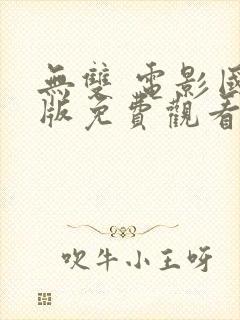 無雙 電影國
版免費觀看
吹牛小王呀